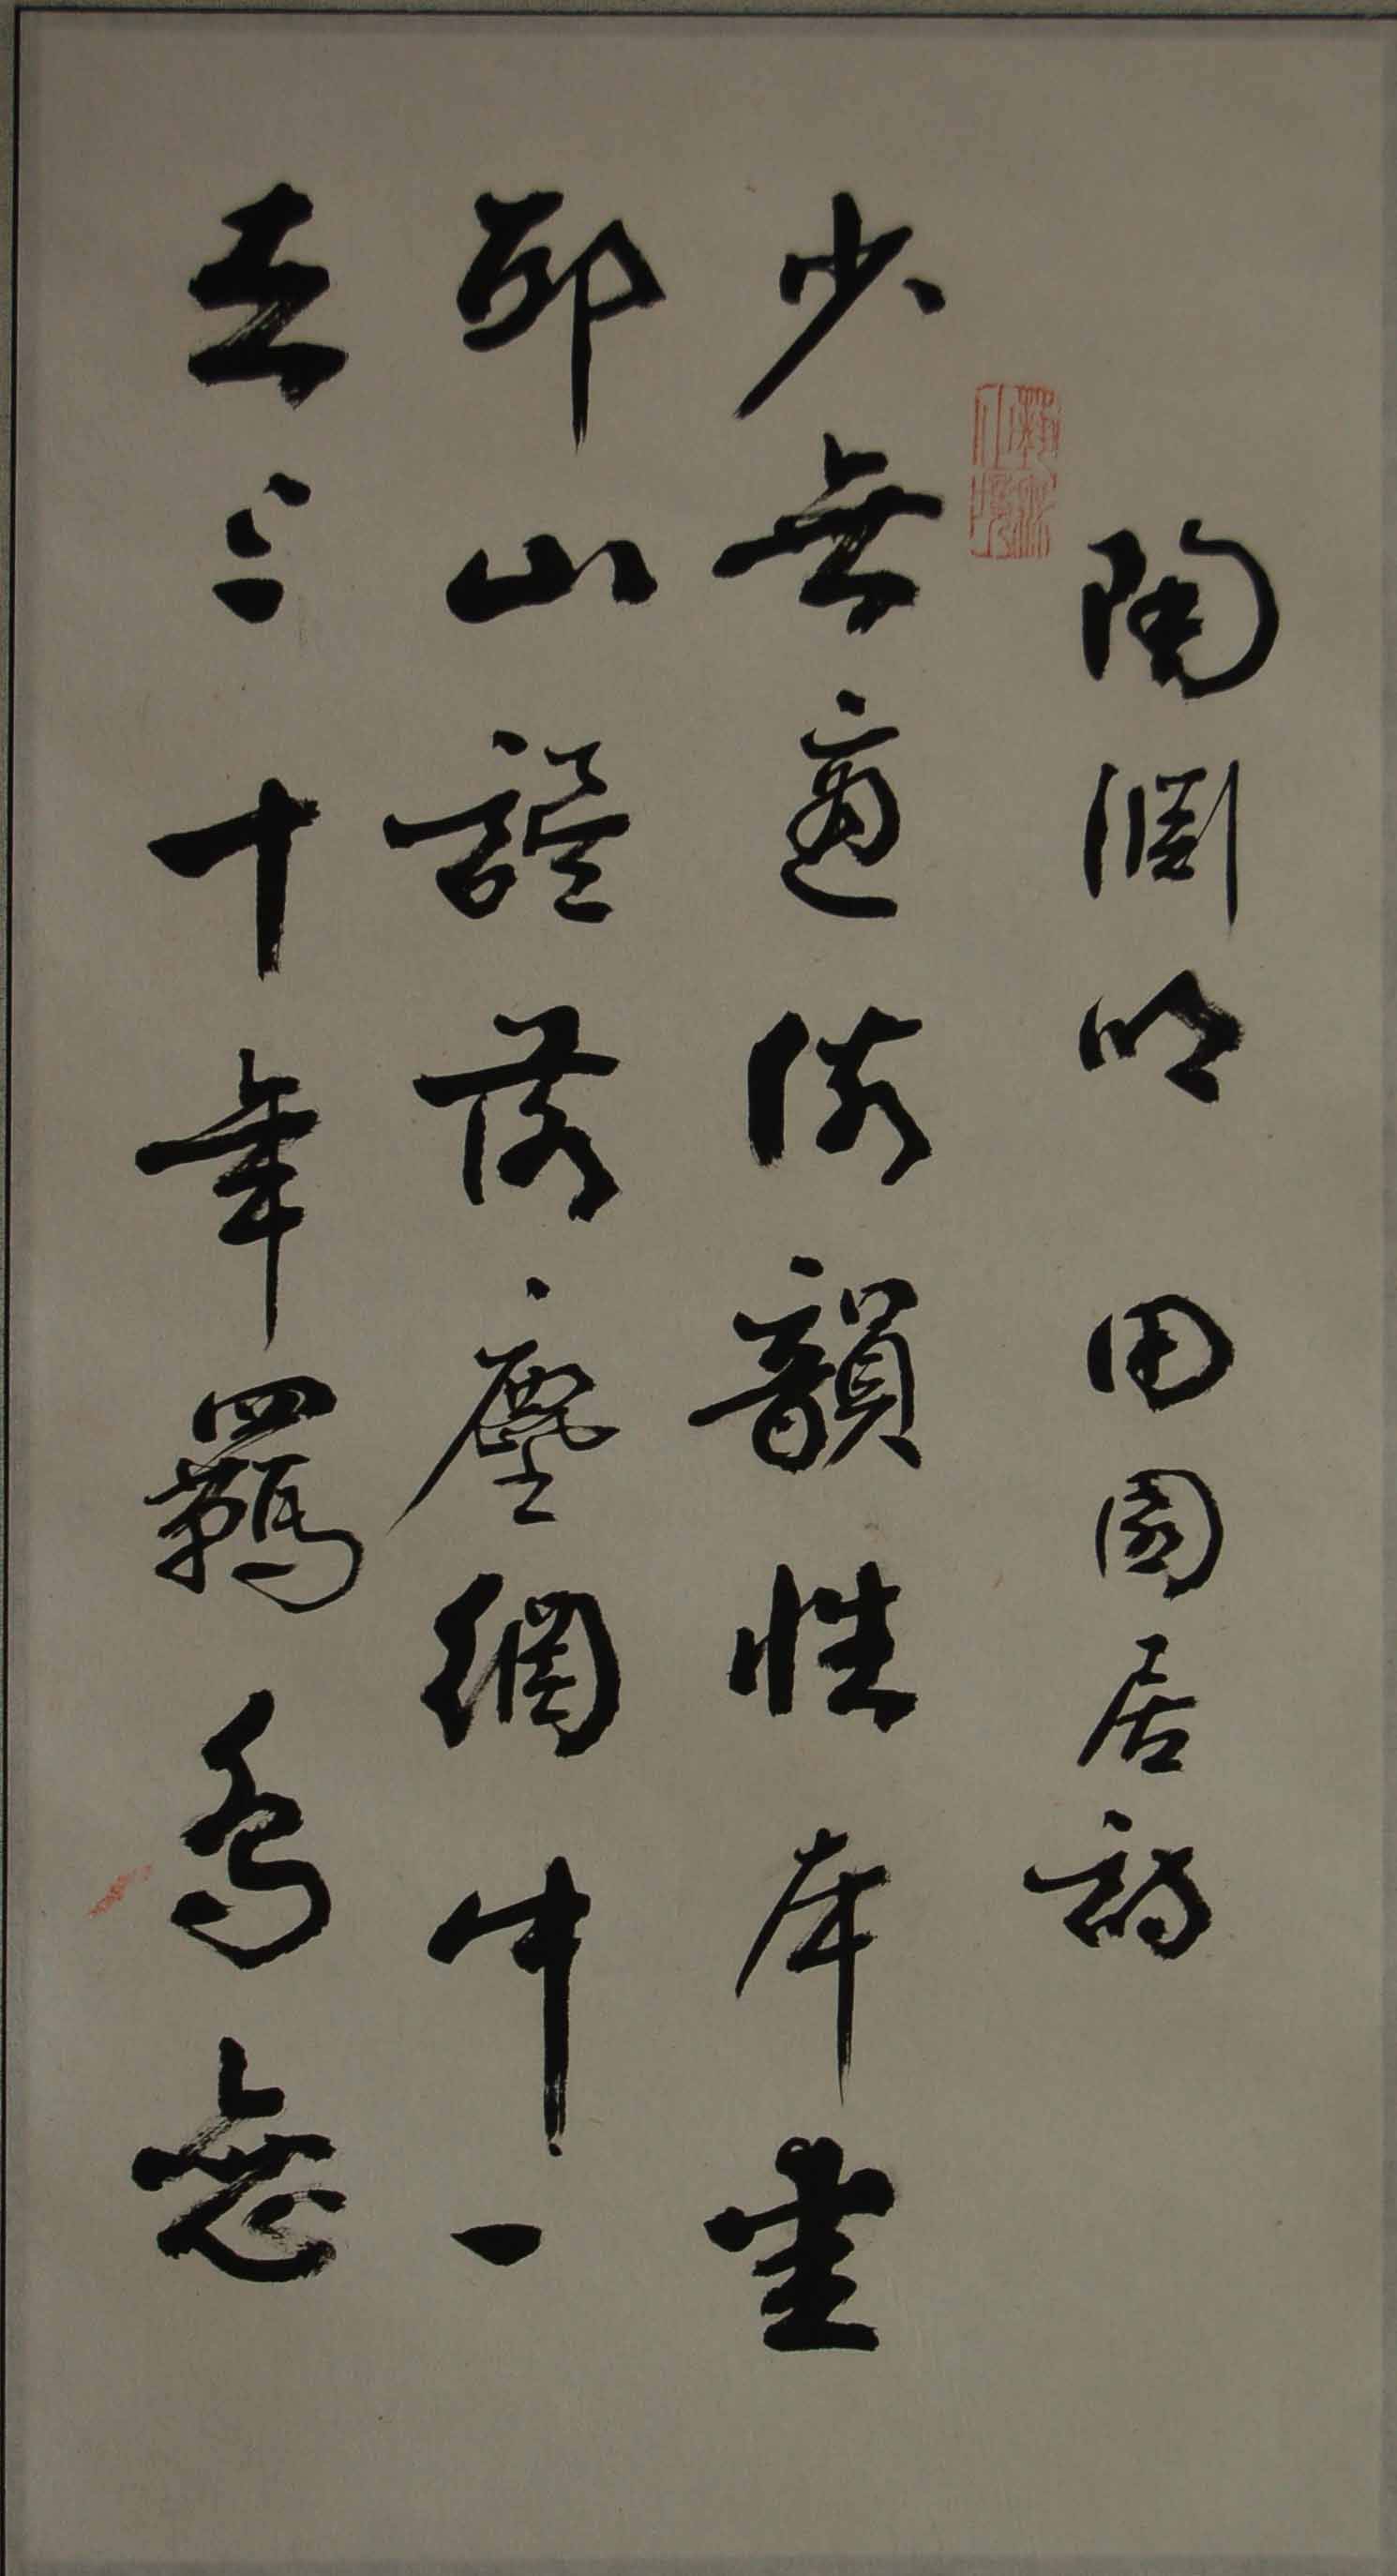 陶淵明 田園居詩
少無適俗韻性本愛
邱山誤落塵網中一
去三十年羈鳥戀